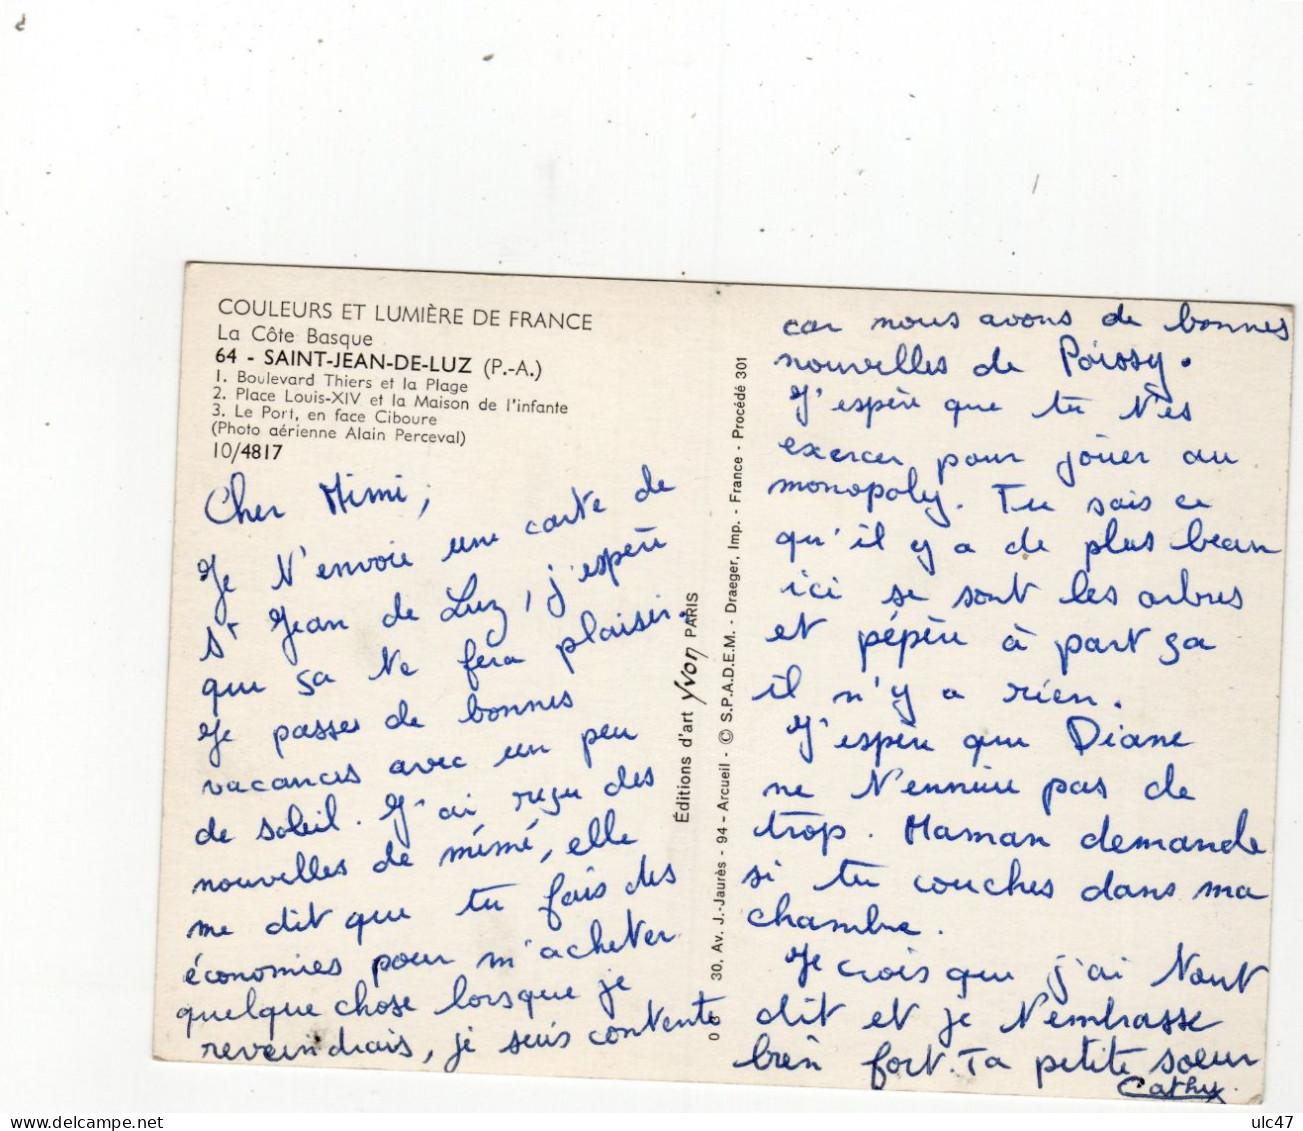 COULEURS ET LUMIÈRE DE FRANCE
La Côte Basque
64 - SAINT-JEAN-DE-LUZ (P.-A.)
1. Boulevard Thiers et la Plage
2. Place Louis-XIV et la Maison de l'infante
3. Le Port, en face Ciboure
(Photo aérienne Alain Perceval)
10/4817
Cher Mimi,
Je t'envoie une carte de
St Jean de Luz, j'espère
que sa te fera plaisir.
Je passes de bonnes
vacances avec un peu
de soleil. J'ai reçu des
nouvelles de mémé, elle
me dit que tu fais des
économies pour m'acheter
quelque chose lorsque je
reveindrais, je suis contente
Éditions d'art Yvon PARIS
30, Av. J.-Jaurès - 94 - Arcueil - © S.P.A.D.E.M. - Draeger, Imp. - France - Procédé 301
car nous avons de bonnes
nouvelles de Poissy.
J'espère que tu t'es
exercer pour jouer au
monopoly. Tu sais ce
qu'il y a de plus beau
ici se sont les arbres
et pépère à part sa
il n'y a rien.
J'espère que Diane
ne t'ennuie pas de
trop. Maman demande
si tu couches dans ma
chambre.
Je crois que j'ai tout
dit et je t'embrasse
bien fort. Ta petite soeur
Cathy.
ulc47